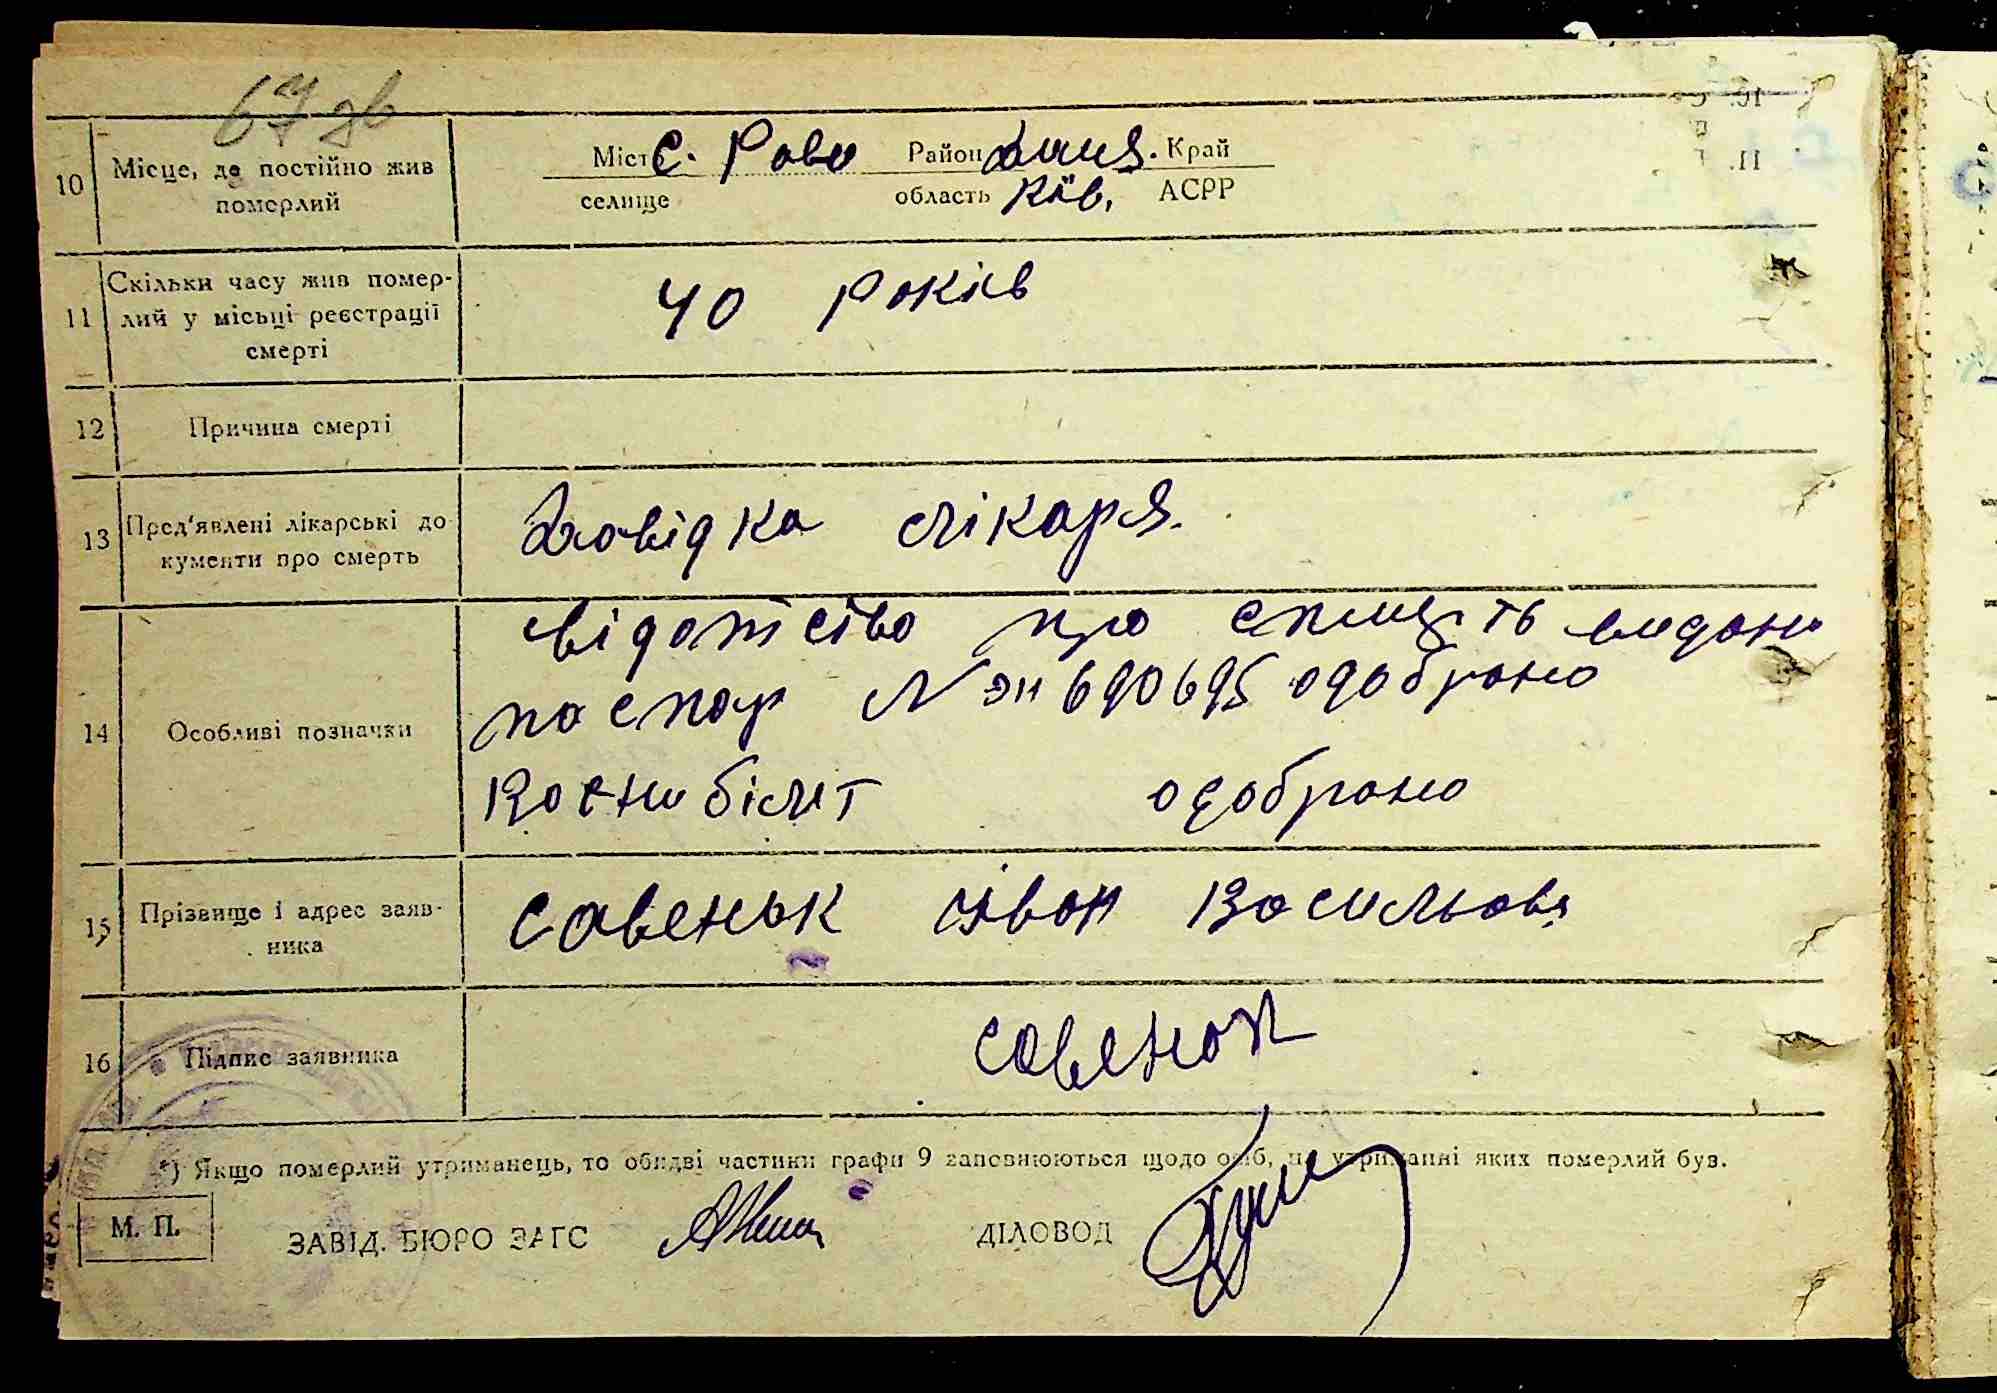 67 зв
10 Місце, де постійно жив померлий
Місто с. Рови Район Димя. Край
селище область Київ. АСРР
11 Скільки часу жив помер-
лий у місьці реєстрації
смерті
40 років
12 Причина смерті
13 Пред'явлені лікарські до-
кументи про смерть
Довідка лікаря.
14 Особливі позначки
свідотство про смерть видан
паспор № 690695 одобрано
Воени білет одобрано
15 Прізвище і адрес заяв-
ника
Савеньк Іван Васильов
16 Підпис заявника
Савенок
*) Якщо померлий утриманець, то обидві частини графи 9 заповнюються щодо осіб, на утриманні яких померлий був.
М. П.
ЗАВІД. БЮРО ЗАГС
ДІЛОВОД